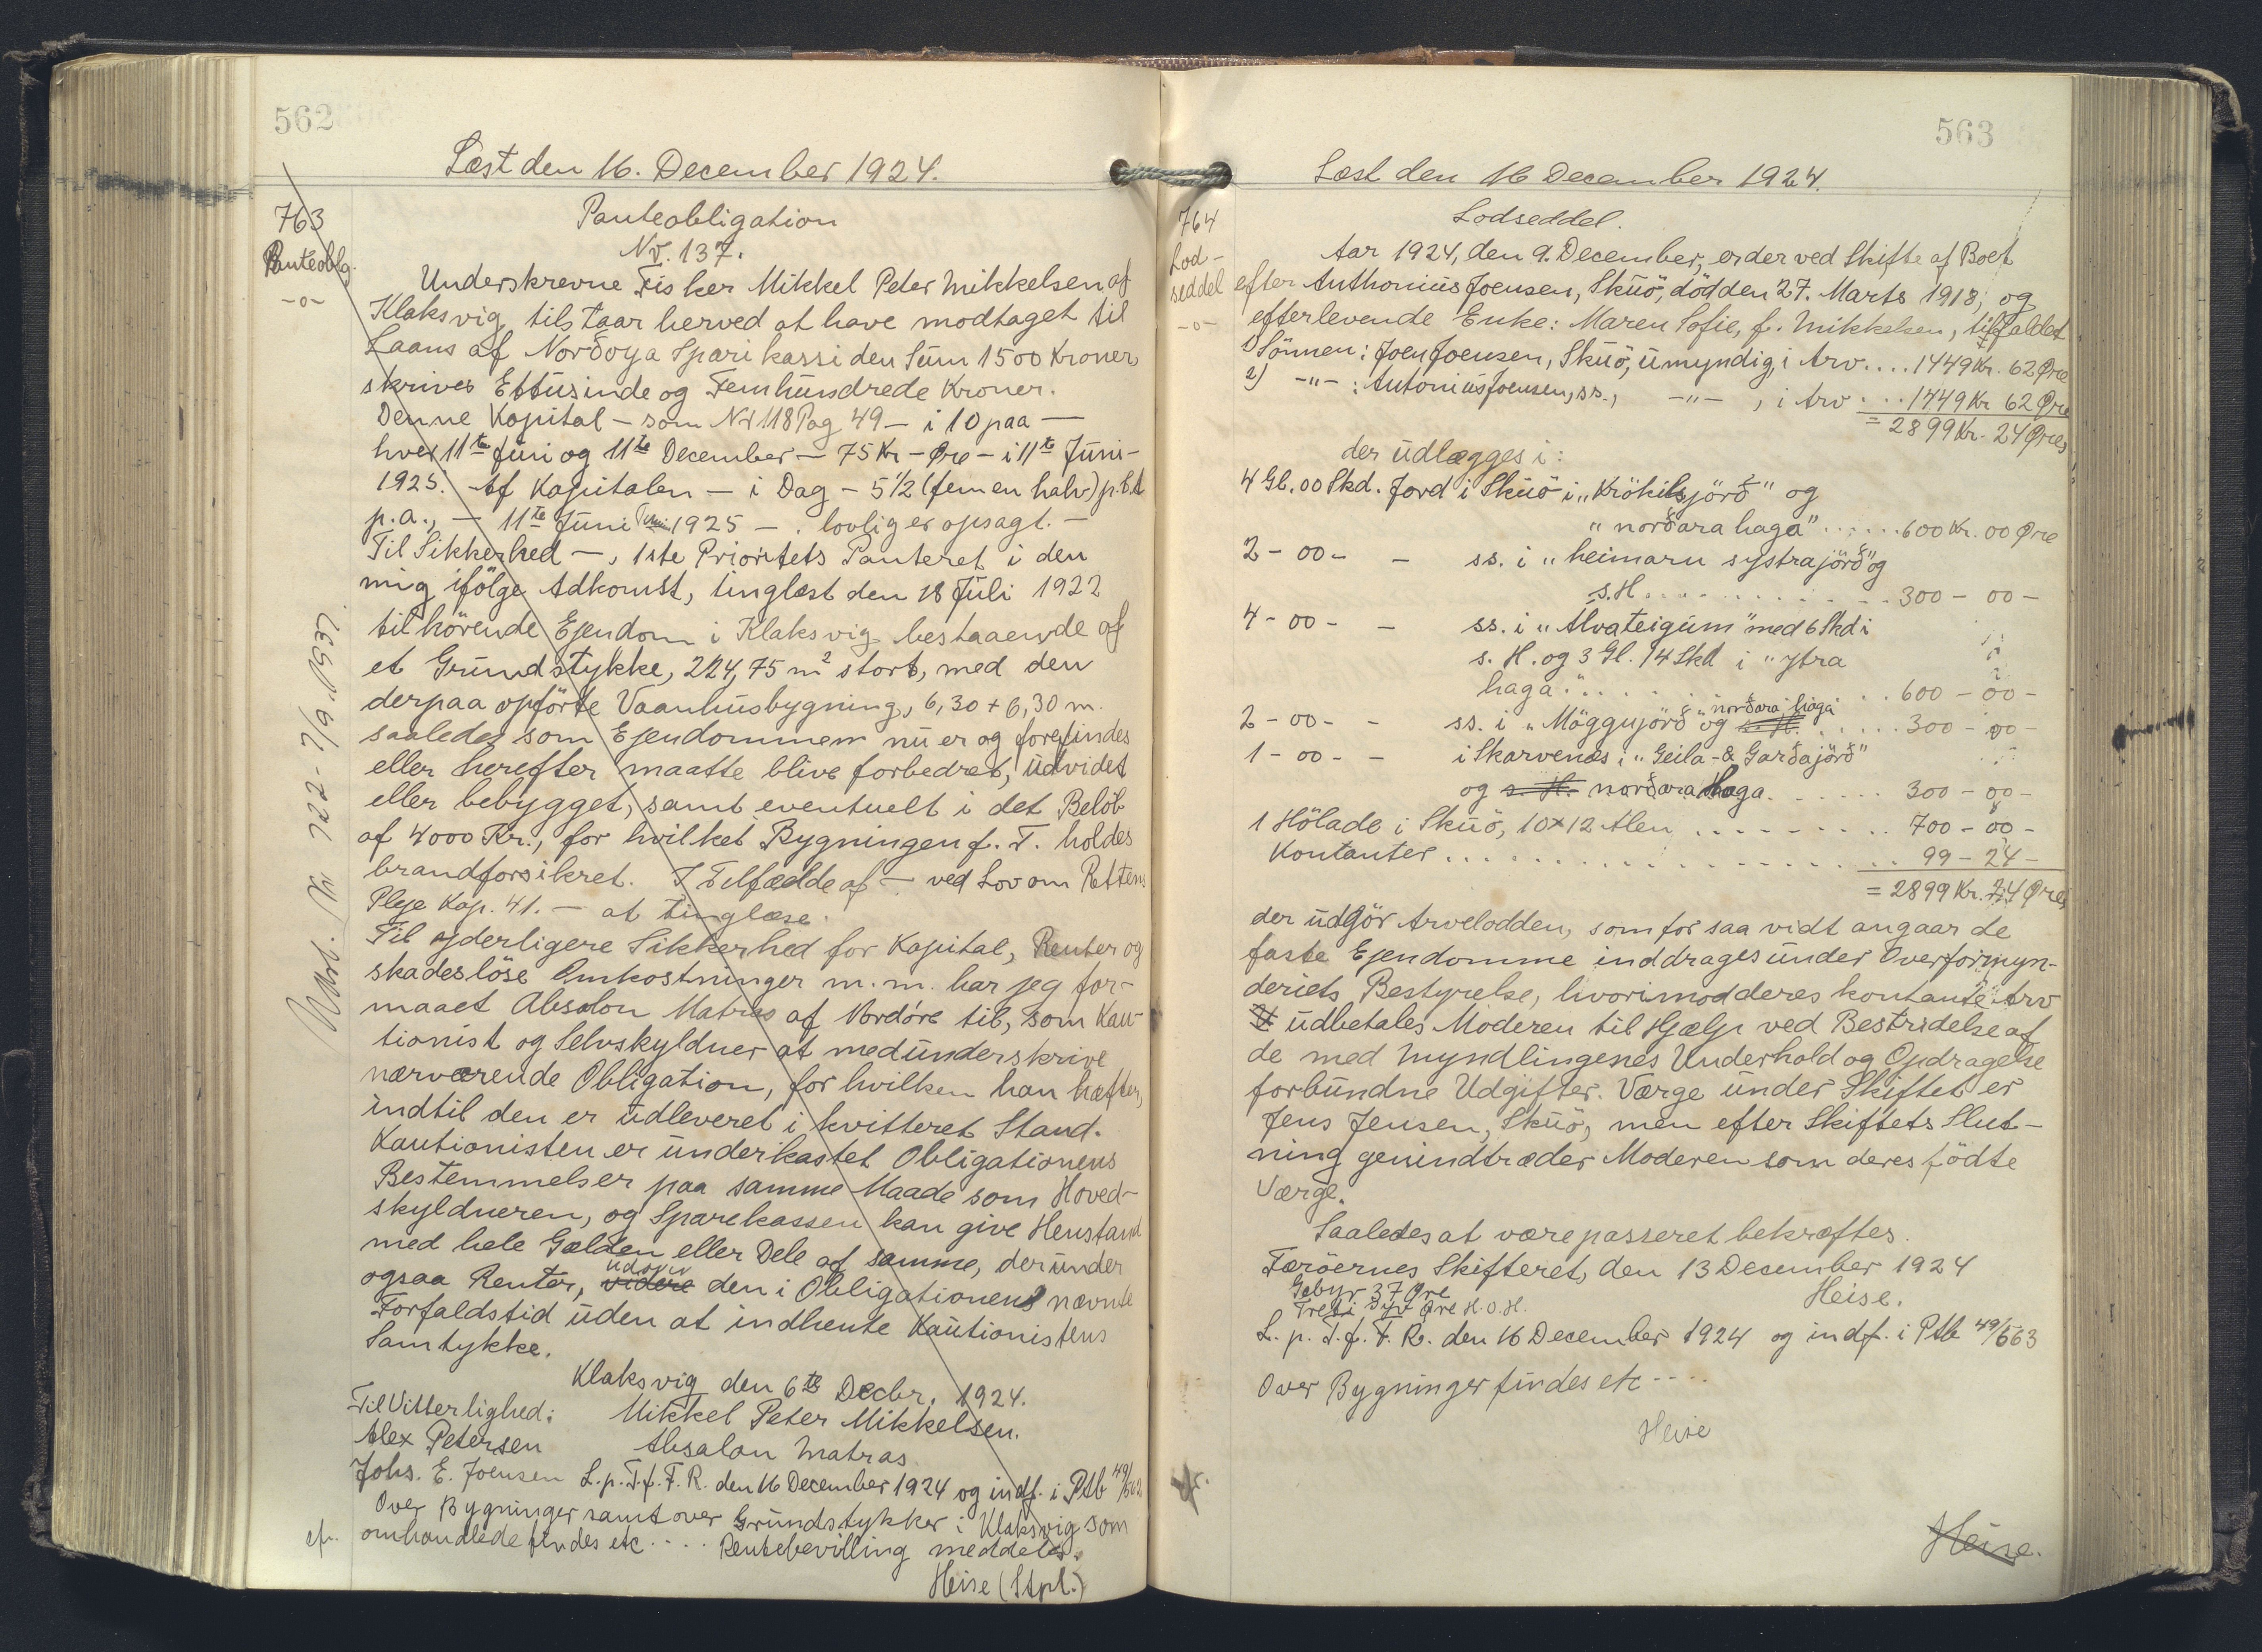 562
Læst den 16. December 1924.
763
Panteoblg.
-o-
Panteobligation
Nr. 137.
Underskrevne Fisker Mikkel Peter Mikkelsen af
Klaksvig tilstaar herved at have modtaget til
Laans af Norðoya Spari kassi den Sum 1500 Kroner
skriver Ettusinde og Femhundrede Kroner.
Denne Kapital - som Nr 118 Pag 49 - i 10 paa -
hver 11te Juni og 11te December - 75 Kr - Øre - i 11te Juni -
1925. Af Kapitalen - i Dag - 5 1/2 (fem en halv) p.Ct
p.a., - 11te Juni 1925 - . lovlig er opsagt. -
Til Sikkerhed -, 1ste Prioritets Panteret i den
mig ifölge Adkomst, tinglæst den 18 Juli 1922
tilhörende Ejendom i Klaksvig bestaaende af
et Grundstykke, 224,75 m² stort, med den
derpaa opförte Vaanhusbygning, 6,30 + 6,30 m.
saaledes som Ejendommen nu er og forefindes
eller herefter maatte blive forbedret, udvidet
eller bebygget, samt eventuelt i det Beløb
af 4000 Kr., for hvilket Bygningen f. T. holdes
brandforsikret. I Tilfælde af - ved Lov om Rettens
Pleje Kap. 41. - at tinglæse.
Til yderligere Sikkerhed for Kapital, Renter og
skadeslöse Omkostninger m.m. har jeg for-
maaet Absalon Matras af Nordöre til, som Kau-
tionist og Selvskyldner at medunderskrive
nærværende Obligation, for hvilken han hæfter,
indtil den er udleveret i kvitteret Stand.
Kautionisten er underkastet Obligationens
Bestemmelser paa samme Maade som Hoved-
skyldneren, og Sparekassen kan give Henstand
med hele Gælden eller Dele af samme, derunder
udover
ogsaa Renter, videre den i Obligationens nævnte
Forfaldstid uden at indhente Kautionistens
Samtykke.
Klaksvig den 6te Decbr. 1924.
Til Vitterlighed: Mikkel Peter Mikkelsen.
Alex Petersen Absalon Matras
Johs. E. Joensen L.p.T.f.F.R. den 16 December 1924 og indf. i Ptb 49/562
Over Bygninger samt over Grundstykker i Klaksvig som
cfr. omhandlede findes etc .... Rentebevilling meddeles.
Heise (Stpl.)
Nr 722 - 7/9 1937.
563
Læst den 16 December 1924.
764
Lod-
seddel
-o-
Lodseddel.
Aar 1924, den 9. December, er der ved Skifte af Boet
efter Anthonius Joensen, Skuö, död den 27. Marts 1918, og
efterlevende Enke: Maren Sofie, f. Mikkelsen, tilfaldet
1) Sönnen: Joen Joensen, Skuö, umyndig, i Arv .... 1449 Kr. 62 Øre
2) -"- : Antonius Joensen, ss., -"- , i Arv ... 1449 Kr 62 Øre
= 2899 Kr. 24 Øre,
der udlægges i:
4 Gl. 00 Skd. Jord i Skuö i "Krökilsjörð" og
"norðara haga" ...... 600 Kr. 00 Øre
2 - 00 - - ss. i "heimaru systrajörð" og
s. H. ............ 300 - 00 -
4 - 00 - - ss. i "Alvateigum" med 6 Skd i
s. H. og 3 Gl. 14 Skd i "ytra
haga." ........ 600 - 00 -
norðara haga
2 - 00 - - ss. i "Möggujörð" og s. H. ..... 300 - 00 -
1 - 00 - - i Skarvenæs i "Geila- & Garðajörð"
og s. H. norðara Haga. ..... 300 - 00 -
1 Hölade i Skuö, 10 x 12 Alen ......... 700 - 00 -
Kontanter ................... 99 - 24 -
= 2899 Kr. 24 Øre,
der udgör Arvelodden, som for saa vidt angaar de
faste Ejendomme inddrages under Overformyn-
deriets Bestyrelse, hvorimod deres kontante Arv
udbetales Moderen til Hjælp ved Bestridelse af
de med Myndlingenes Underhold og Opdragelse
forbundne Udgifter. Værge under Skiftet er
Jens Jensen, Skuö, men efter Skiftets Slut-
ning genindtræder Moderen som deres födte
Værge.
Saaledes at være passeret bekræftes.
Færöernes Skifteret, den 13 December 1924
Gebyr 37 Øre Heise.
Treti Syv Øre H.O.H.
L. p. T. f. F. R. den 16 December 1924 og indf. i Ptb 49/563
Over Bygninger findes etc ....
Heise
Heise.